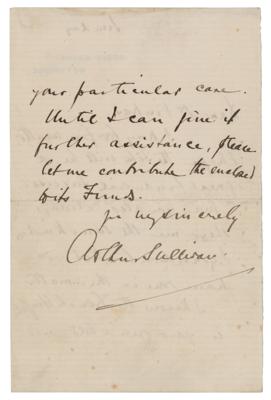 your particular care.
Until I can give it
further assistance, please
let me contribute the enclosed
to its Funds.
yrs very sincerely
Arthur Sullivan.